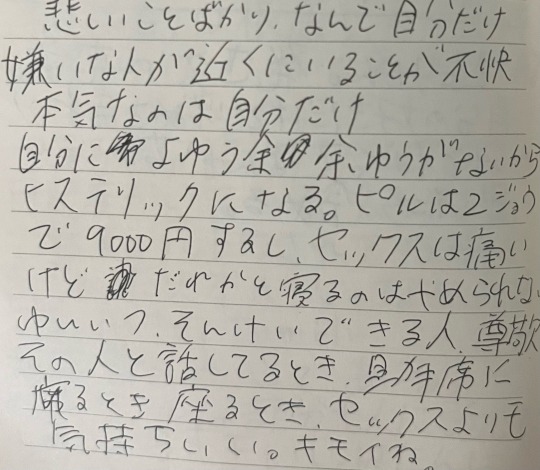 悲しいことばかり、なんで自分だけ
嫌いな人が近くにいることが不快
本気なのは自分だけ
自分に よゆう余 余ゆうがないから
ヒステリックになる。ピルは2ジョウ
で9000円するし、セックスは痛い
けど だれかと寝るのはやめられない
ゆいいつ、そんけいできる人、尊敬
その人と話してるとき、助手席に
座るとき座るとき、セックスよりも
気持ちいい。キモイね。